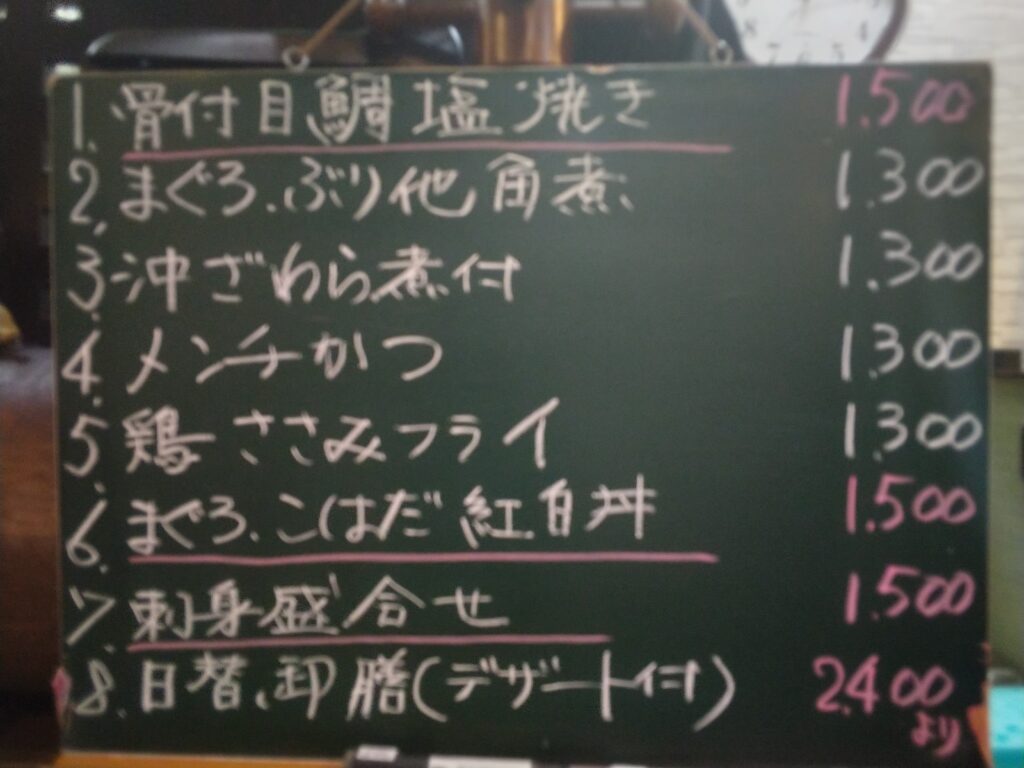 1. 骨付目鯛塩焼き 1.500
2. まぐろ、ぶり他角煮 1.300
3. 沖ざわら煮付 1.300
4. メンチかつ 1.300
5. 鶏ささみフライ 1.300
6. まぐろ、こはだ紅白丼 1.500
7. 刺身盛合せ 1.500
8. 日替、卸膳(デザート付) 2.400
より